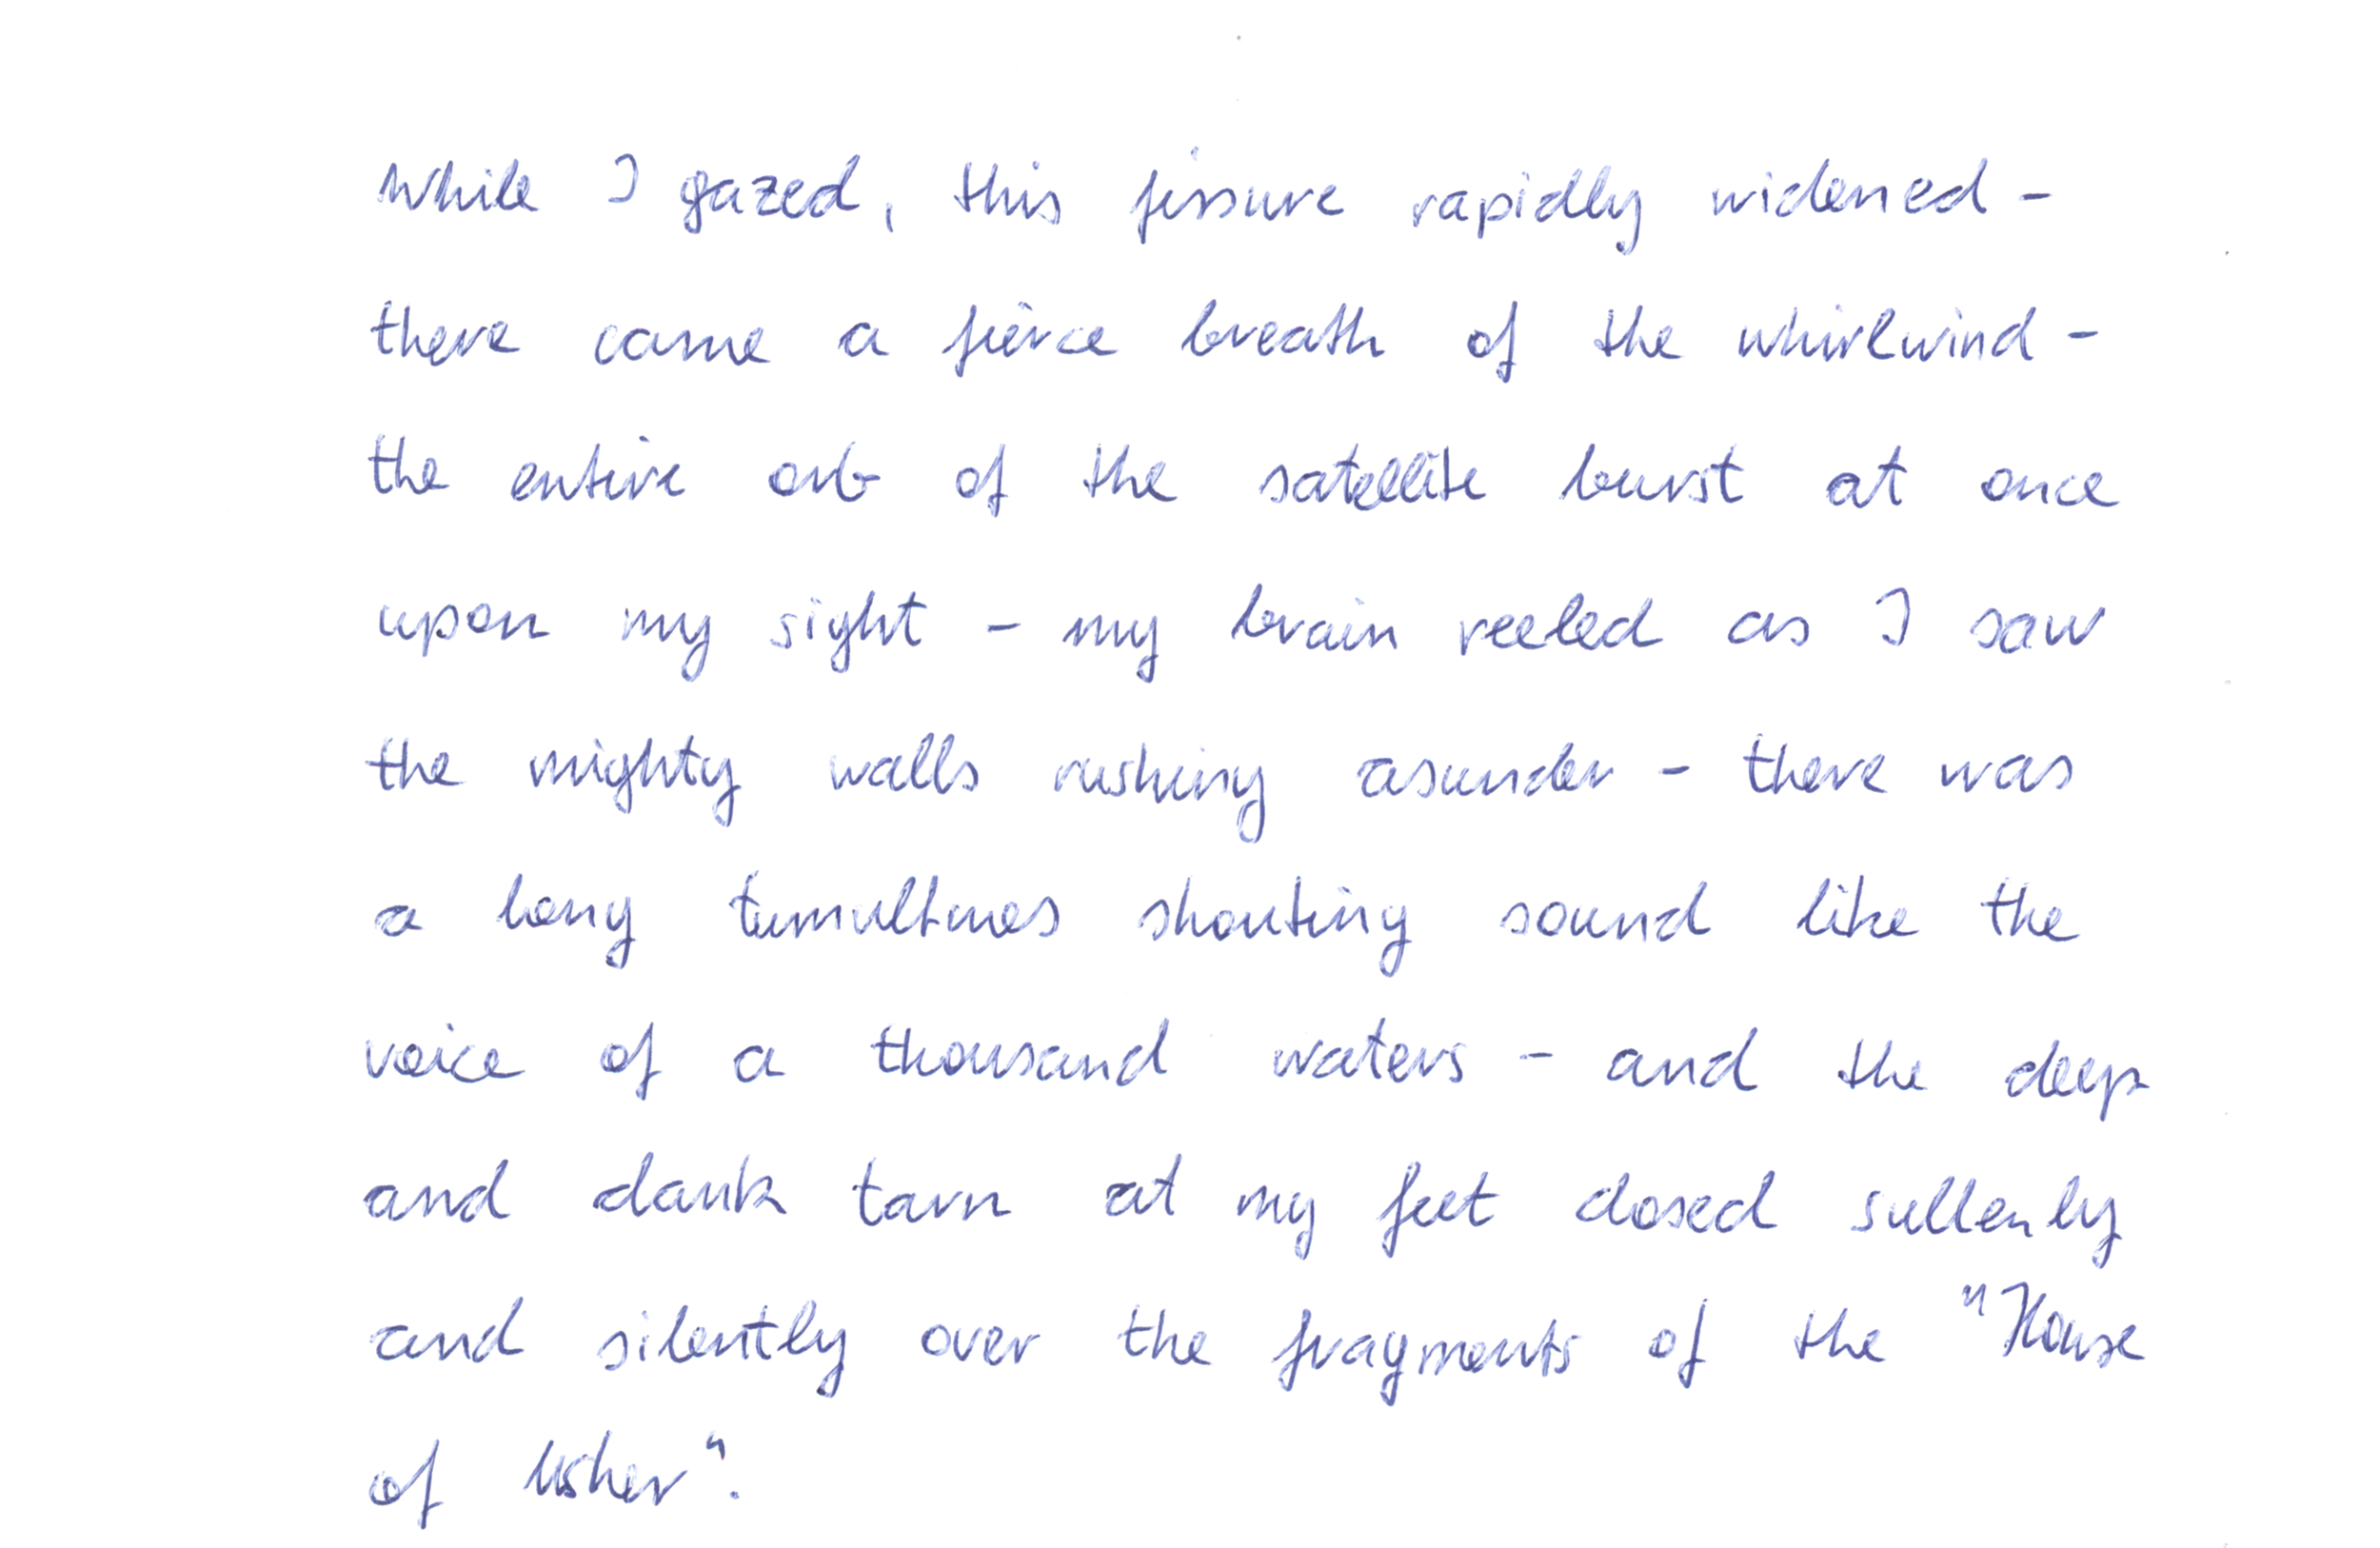 While I gazed, this fissure rapidly widened -
there came a fierce breath of the whirlwind -
the entire orb of the satellite burst at once
upon my sight - my brain reeled as I saw
the mighty walls rushing asunder - there was
a long tumultuous shouting sound like the
voice of a thousand waters - and the deep
and dank tarn at my feet closed sullenly
and silently over the fragments of the "House
of Usher".